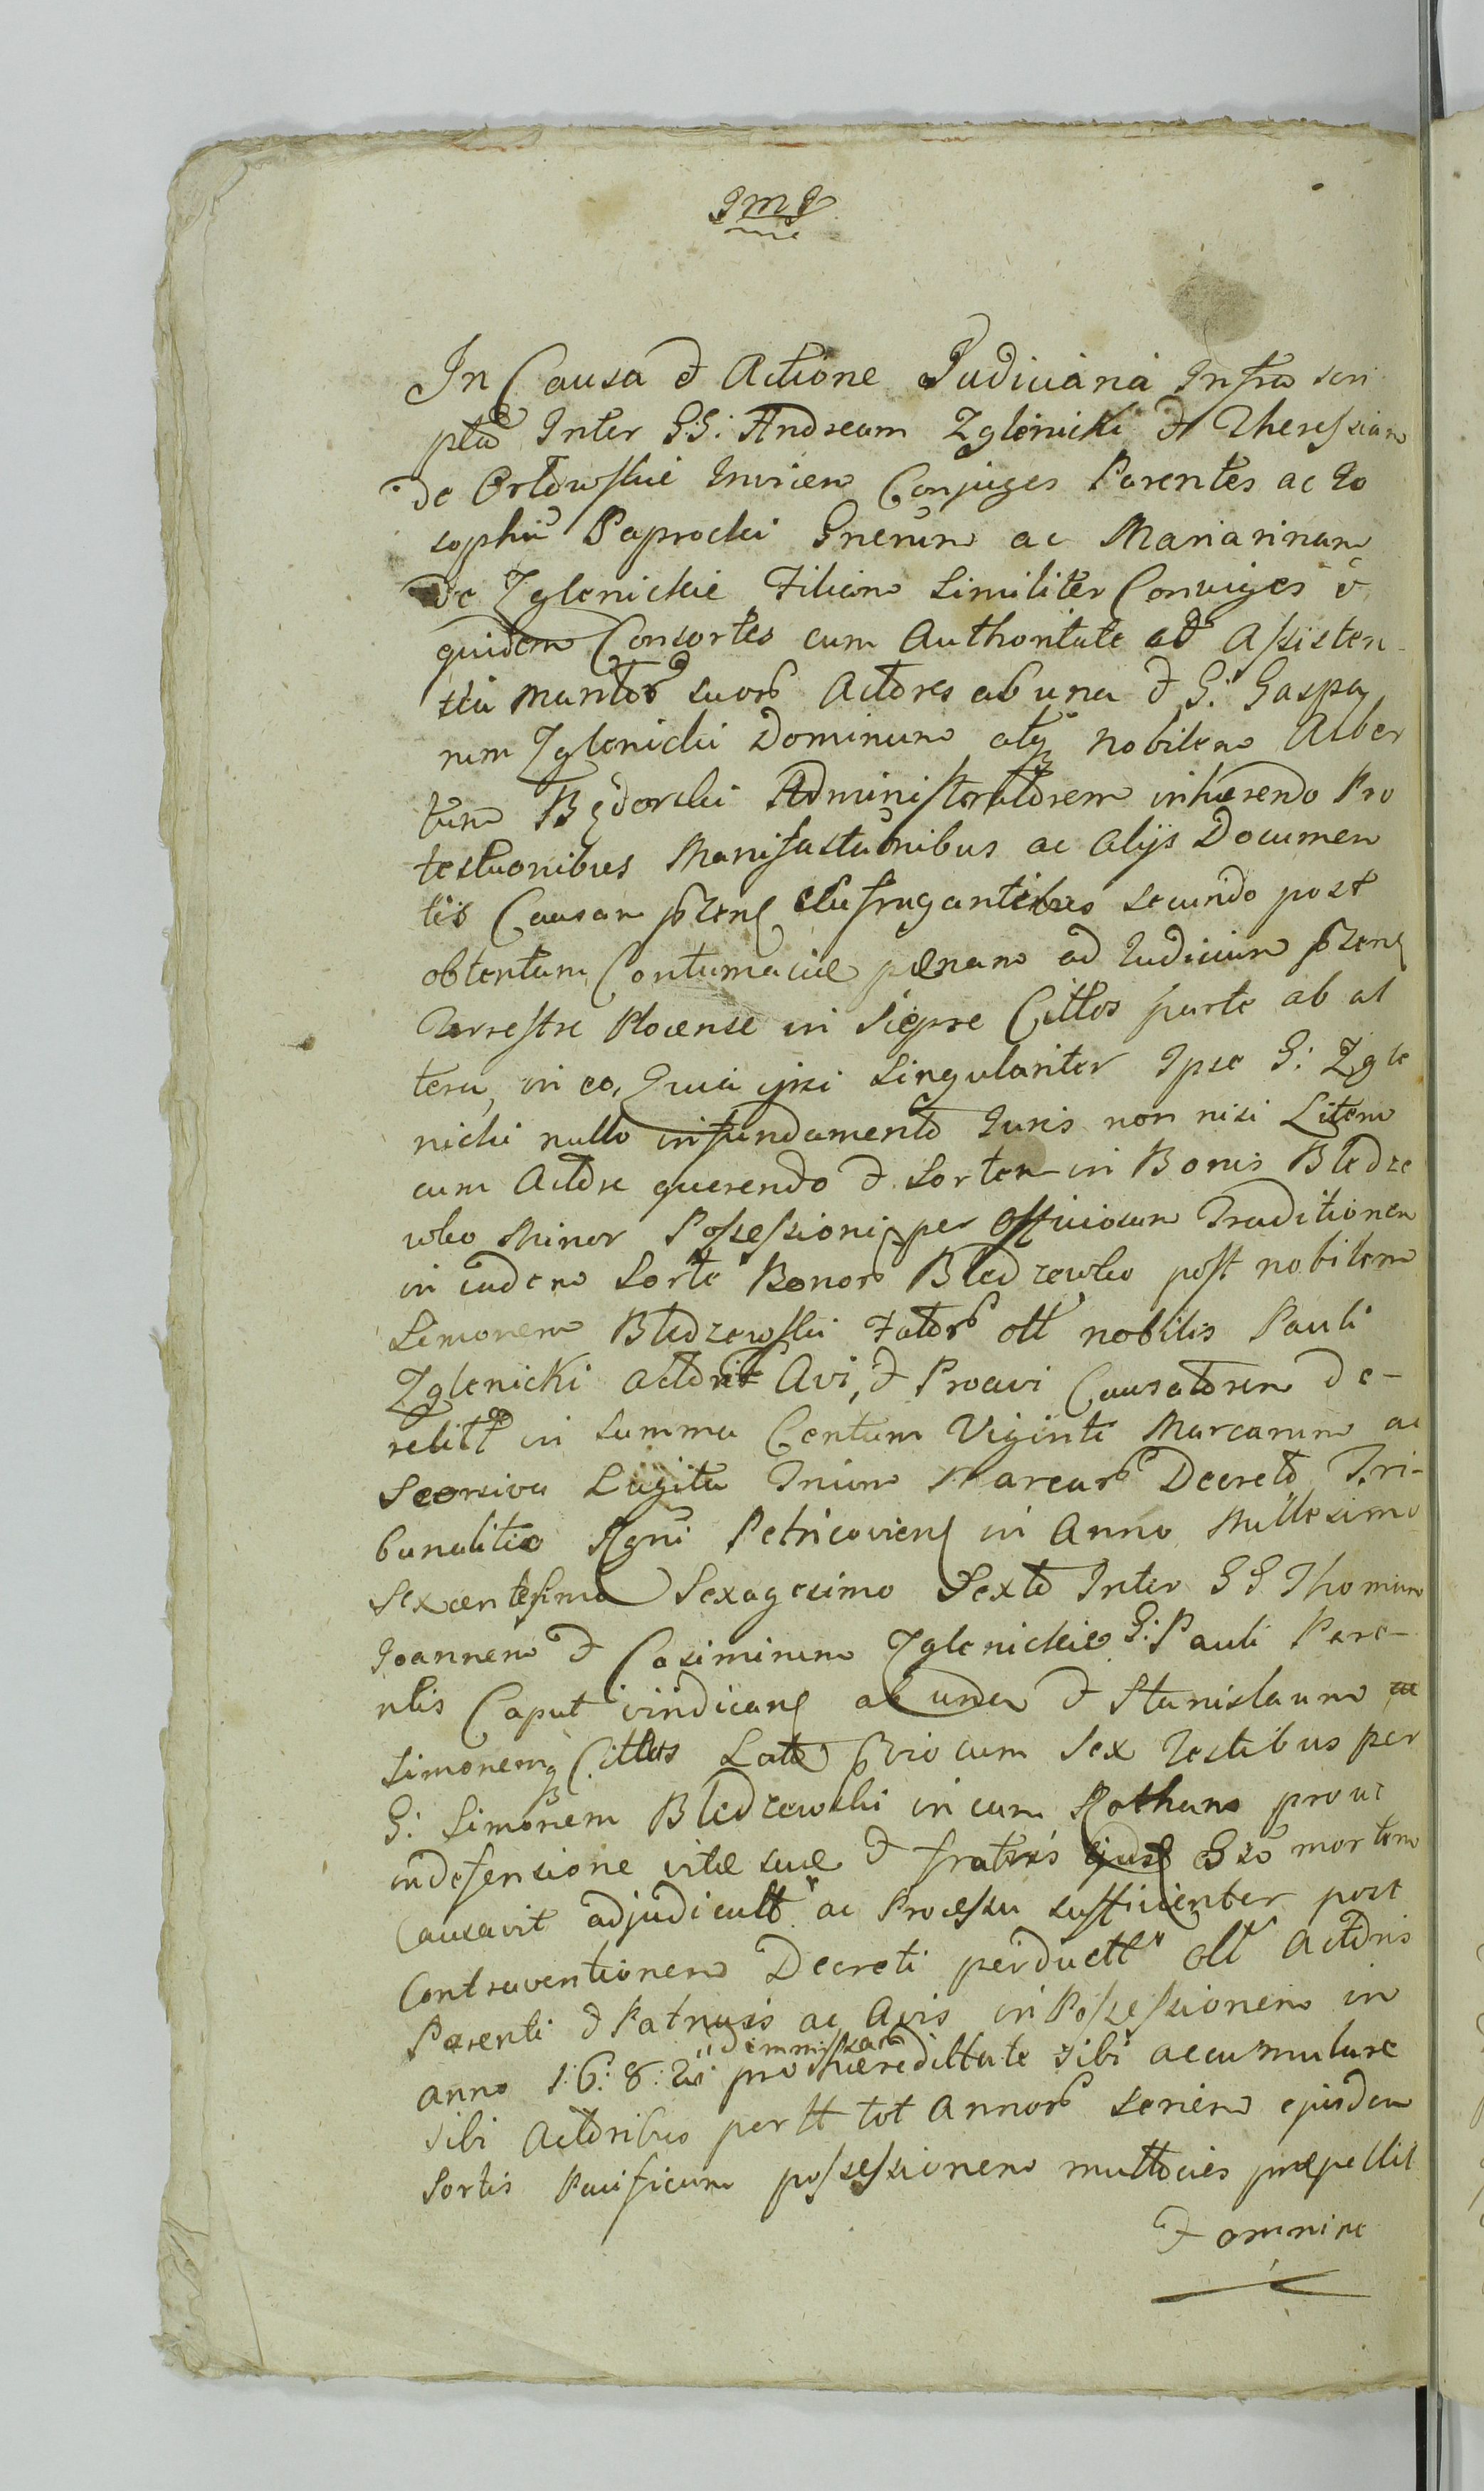 JMJ
In Causa et Actione Judiciaria Infra scri
pta Inter GG: Andream Zglenicki et Theressiam
de Orłowskie Invicem Conjuges Parentes ac Jo
sephu Paprocki Generum ac Mariannam
De Zglenickie Filiam Similiter Conviges et
quidem Consortes cum Authoritate et Assisten
tia Maritor suor Actores ab una et G: Gaspa
rem Zglenicki Dominum atq Nobilem Alber
tum Będorski Administratorem inhærendo Pro
testaonibus Manifestaonibus ac alijs Documen
tis Causam pzens sufragantibus secundo post
obtentam Contumaciæ pænam ad Iudicium pzens
Terrestre Plocense in Siepre Cittos parte ab al
tera, in eo, Quia ipsi Singulariter Ipse G: Zgle
nicki nullo in fundamento Iuris non nisi Litem
cum Actore querendo et Sortem in Bonis Bledze
wko Minor Possessionis per Officiosam Traditionem
in eadem Sorte Bonor Bledzewko post nobilem
Simonem Bledzewski Fator olt nobilis Pauli
Zglenicki Avi, et Proavi Causatorem de-
relitt in Summa Centum Viginti Marcarum ac
Seorsiva Trium Marcar Decreto Tri-
bunalitio Rgni Petricoviens in Anno Millesimo
Sexcentesimo Sexagesimo Sexto Inter GG Thomam
Joannem et Casimirum Zglenickie G: Pauli Pare-
ntis Caput vindicans ab una et Stanislaum ac
Simonemq Cittos Lato cum Sex Testibus per
G: Simonem Bledzewski in eam Rotham prout
in defensione vitæ suæ et fratris ejusd mortem
Causavit adjudicatt ac Processu sufficienter post
Contraventionem Decreti perductt olt Actoris
Parenti et Patruis ac Avis in Possessionem in
anno 1:6:8: pro hæreditate sibi accumulare
dimmissar
sibi Actoribus per tt tot Annor seriem ejusdem
Sortis Pacificam possessionem multocies præpellit
et omnine